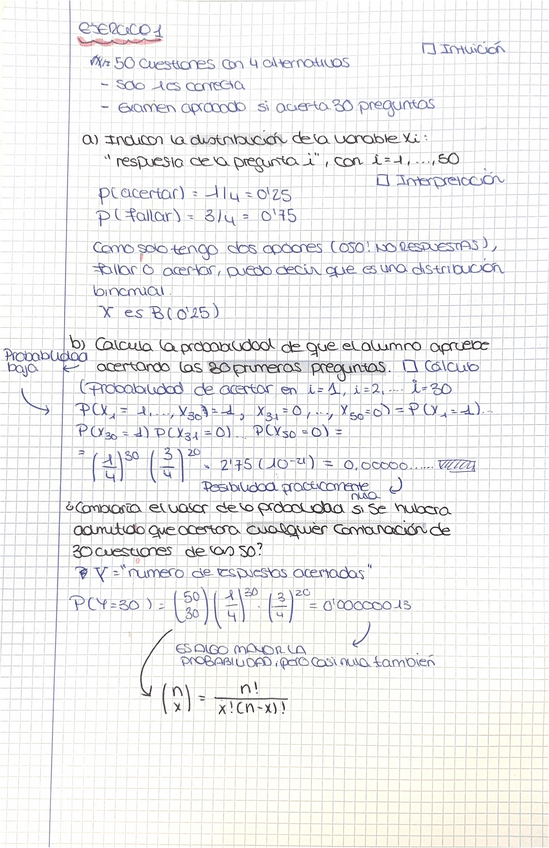 EJERCICO 1
□ Intuición
50 cuestiones con 4 alternativas
- solo 1 es correcta
- examen aprobado si acierta 30 preguntas
a) Indicar la distribución de la variable Xi:
"respuesta de la pregunta i", con i=1, ..., 50
□ Interpretación
P(acertar) = 1/4 = 0'25
P(fallar) = 3/4 = 0'75
Como solo tengo dos opciones (OJO! NO RESPUESTAS),
fallar o acertar, puedo decir que es una distribución
binomial.
X es B(0'25)
b) Calcula la probabilidad de que el alumno apruebe
acertando las 30 primeras preguntas. □ Cálculo
Probabilidad
baja
(probabilidad de acertar en i=1, i=2, ... i=30
P(X₁=1, ..., X₃₀=1, X₃₁=0, ..., X₅₀=0) = P(X₁=1)...
P(X₃₀=1) P(X₃₁=0)... P(X₅₀=0) =
= (1/4)³⁰ (3/4)²⁰ = 2'75 (10⁻²¹) = 0,00000......
Posibilidad practicamente nula
¿Cambiaría el valor de la probabilidad si se hubiera
admitido que acertara cualquier combinación de
30 cuestiones de las 50?
Y = "número de respuestas acertadas"
P(Y=30) = (50 30) (1/4)³⁰ · (3/4)²⁰ = 0'00000013
ES ALGO MAYOR LA
PROBABILIDAD, pero casi nula también
(n x) = n! / x!(n-x)!